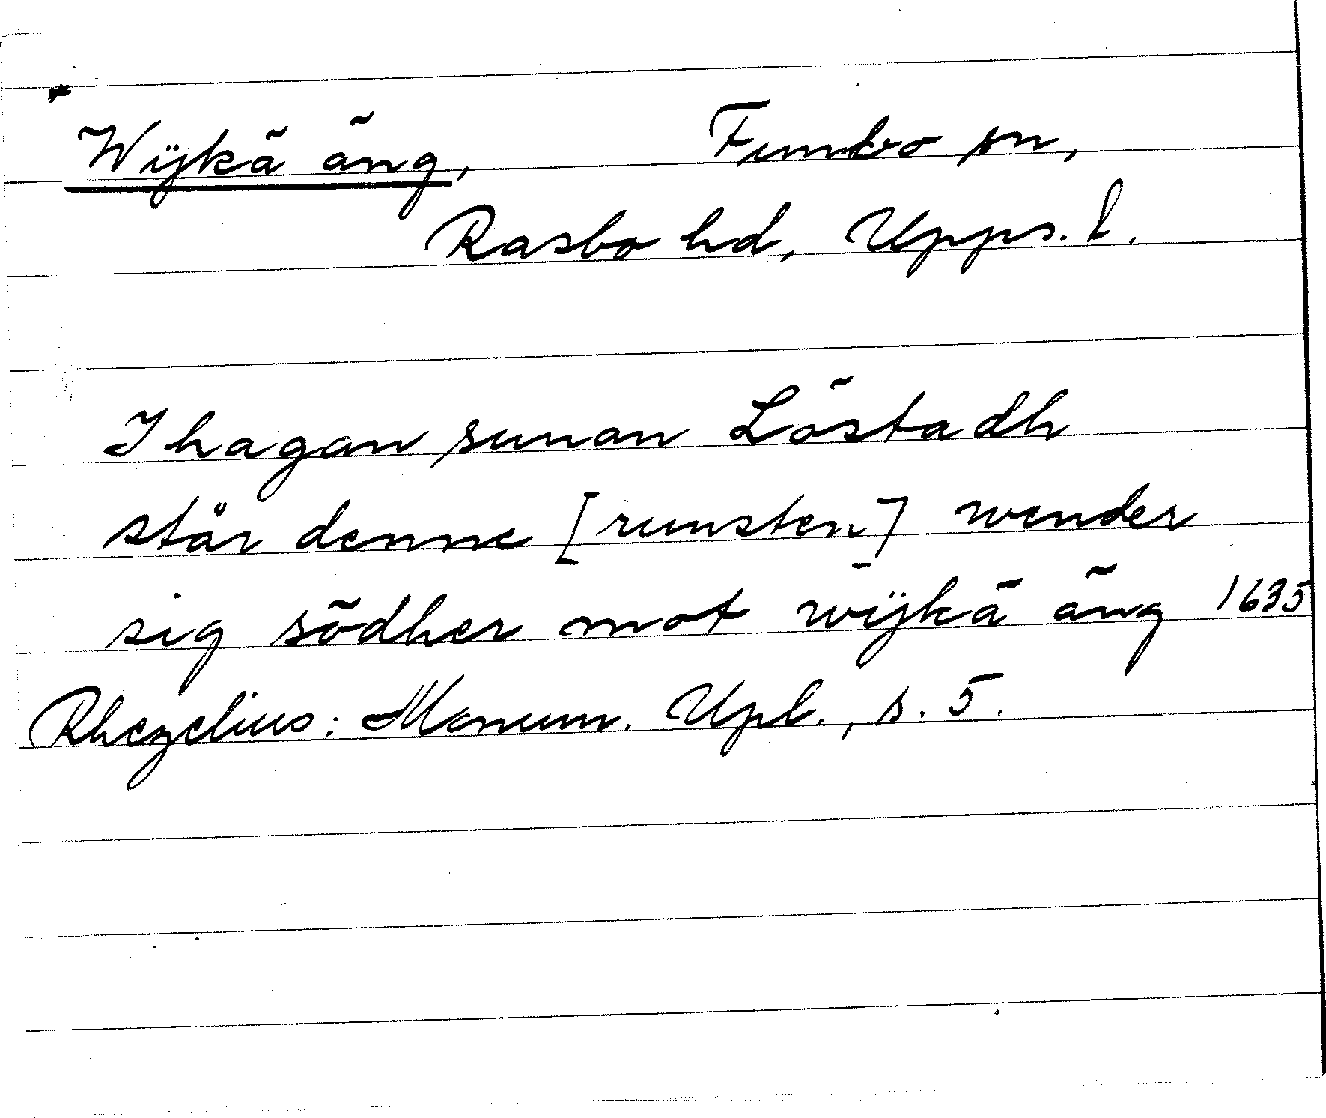 Wijkä äng, Funbo sn,
Rasbo hd, Upps. l.
I hagan sunan Löstadh
står denne [runsten] wender
sig södher mot wijkä äng 1635
Rhezelius: Monum. Upl., s. 5.